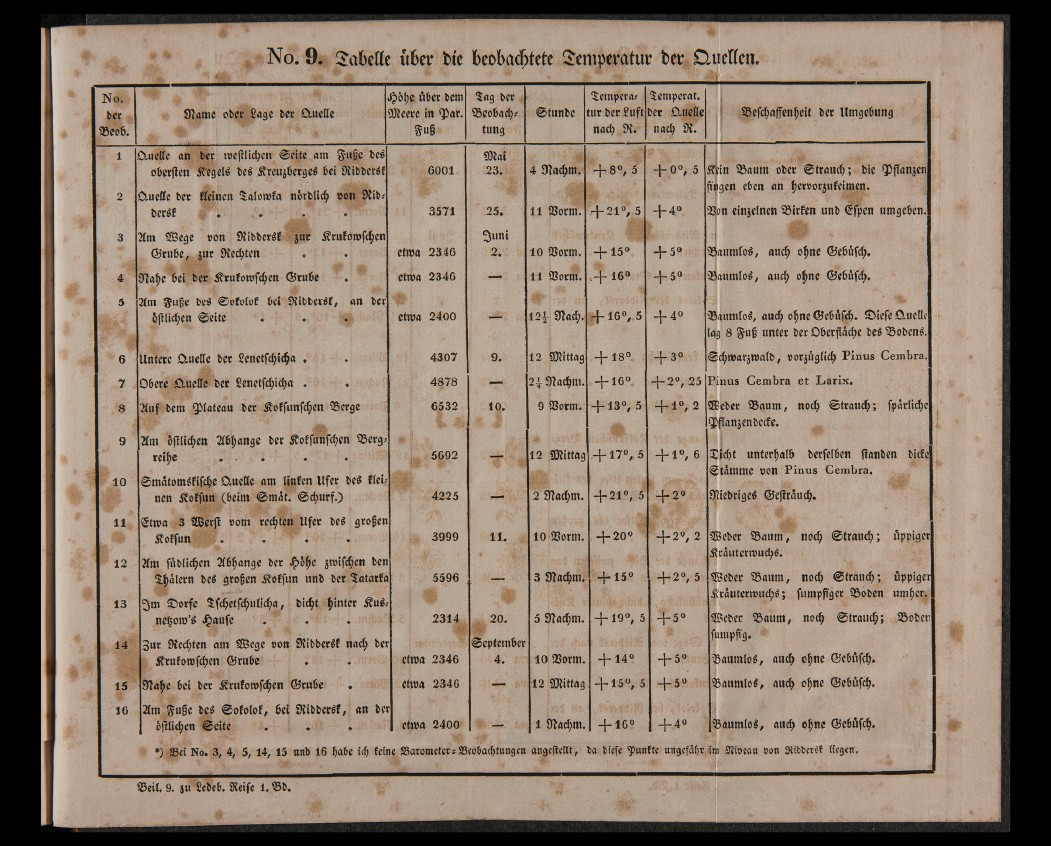 No. 9. Tabelle über die beobachtete Temperatur der Quellen.
No. der Beob. | Name oder Lage der Quelle | Höhe über dem Meere in Par. Fuß | Tag der Beobach-tung | Stunde | Tempera-tur der Luft nach R. | Temperat. der Quelle nach R. | Beschaffenheit der Umgebung
1 Quelle an der westlichen Seite am Fuße des Mai
obersten Kegels des Kreuzberges bei Riddersk 6001 23. 4 Nachm. +8°, 5 +0°, 5 Kein Baum oder Strauch; die Pflanzen
fingen eben an hervorzukeimen.
2 Quelle der kleinen Talowka nördlich von Rid-
dersk . . . . 3571 25. 11 Vorm. +21°, 5 +4° Von einzelnen Birken und Espen umgeben.
3 Am Wege von Riddersk zur Krukowschen Juni
Grube, zur Rechten . . etwa 2346 2. 10 Vorm. +15° +5° Baumlos, auch ohne Gebüsch.
4 Nahe bei der Krukowschen Grube . etwa 2346 — 11 Vorm. +16° +5° Baumlos, auch ohne Gebüsch.
5 Am Fuße des Sokolok bei Riddersk, an der
östlichen Seite . . . etwa 2400 — 12½ Nach. +16°, 5 +4° Baumlos, auch ohne Gebüsch. Diese Quelle
lag 8 Fuß unter der Oberfläche des Bodens.
6 Untere Quelle der Lenetschicha . . 4307 9. 12 Mittag +18° +3° Schwarzwald, vorzüglich Pinus Cembra.
7 Obere Quelle der Lenetschicha . . 4878 — 2¼ Nachm. +16° +2°, 25 Pinus Cembra et Larix.
8 Auf dem Plateau der Koksunschen Berge 6532 10. 9 Vorm. +13°, 5 +1°, 2 Weder Baum, noch Strauch; spärliche
Pflanzendecke.
9 Am östlichen Abhange der Koksunschen Berg-
reihe . . . . 5692 — 12 Mittag +17°, 5 +1°, 6 Dicht unterhalb derselben standen dicke
Stämme von Pinus Cembra.
10 Smätomskische Quelle am linken Ufer des klei-
nen Koksun (beim Smät. Schurf.) 4225 — 2 Nachm. +21°, 5 +2° Niedriges Gesträuch.
11 Etwa 3 Werst vom rechten Ufer des großen
Koksun . . . . 3999 11. 10 Vorm. +20° +2°, 2 Weder Baum, noch Strauch; üppiger
Kräuterwuchs.
12 Am südlichen Abhange der Höhe zwischen den
Thälern des großen Koksun und der Tatarka 5596 — 3 Nachm. +15° +2°, 5 Weder Baum, noch Strauch; üppiger
Kräuterwuchs; sumpfiger Boden umher.
13 Im Dorfe Tschetschulicha, dicht hinter Kus-
netzow's Hause . . . 2314 20. 5 Nachm. +19°, 5 +5° Weder Baum, noch Strauch; Boden
sumpfig.
14 Zur Rechten am Wege von Riddersk nach der September
Krukowschen Grube . . etwa 2346 4. 10 Vorm. +14° +5° Baumlos, auch ohne Gebüsch.
15 Nahe bei der Krukowschen Grube . etwa 2346 — 12 Mittag +15°, 5 +5° Baumlos, auch ohne Gebüsch.
16 Am Fuße des Sokolok, bei Riddersk, an der
östlichen Seite . . . etwa 2400 — 1 Nachm. +16° +4° Baumlos, auch ohne Gebüsch.
*) Bei No. 3, 4, 5, 14, 15 und 16 habe ich keine Barometer-Beobachtungen angestellt, da diese Punkte ungefähr im Niveau von Riddersk liegen.
Beil. 9. zu Ledeb. Reise 1. Bd.